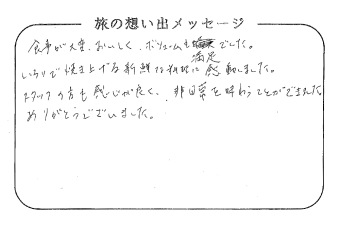 旅の想い出メッセージ
食事が大変、おいしく、ボリュームも満足でした。
いろりで焼き上げる新鮮な料理に感動しました。
スタッフの方も感じが良く、非日常を味わうことができました
ありがとうございました。